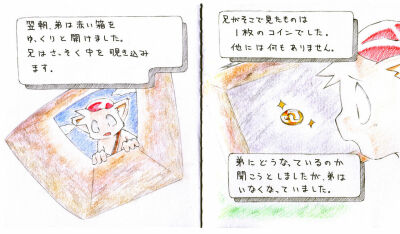 翌朝、弟は赤い箱を
ゆっくりと開けました。
兄はさっそく中を覗き込み
ます。
兄がそこで見たものは
1枚のコインでした。
他には何もありません。
弟にどうなっているのか
聞こうとしましたが、弟は
いなくなっていました。